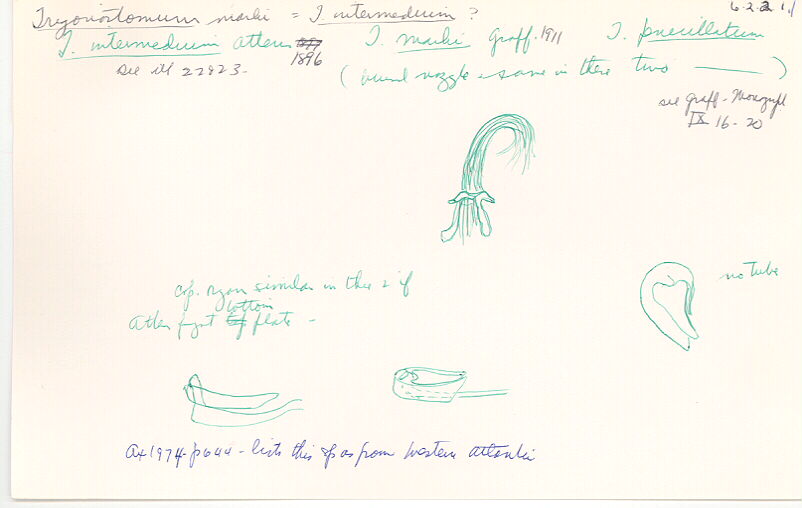 Trigonostomum marki = T. intermedium ?
6.2.2 1.1
T. intermedium Attems 1896
T. marki Graff. 1911
T. penicillatum
see ill 22923.
( bursal nozzle - same in these two ——— )
see Graff - Monograph
IX 16-20
no tube
cop. organ similar in this 2 if
Attems forgot bottom plate -
Ax 1974 - p 644 - lists this sp as from Western Atlantic